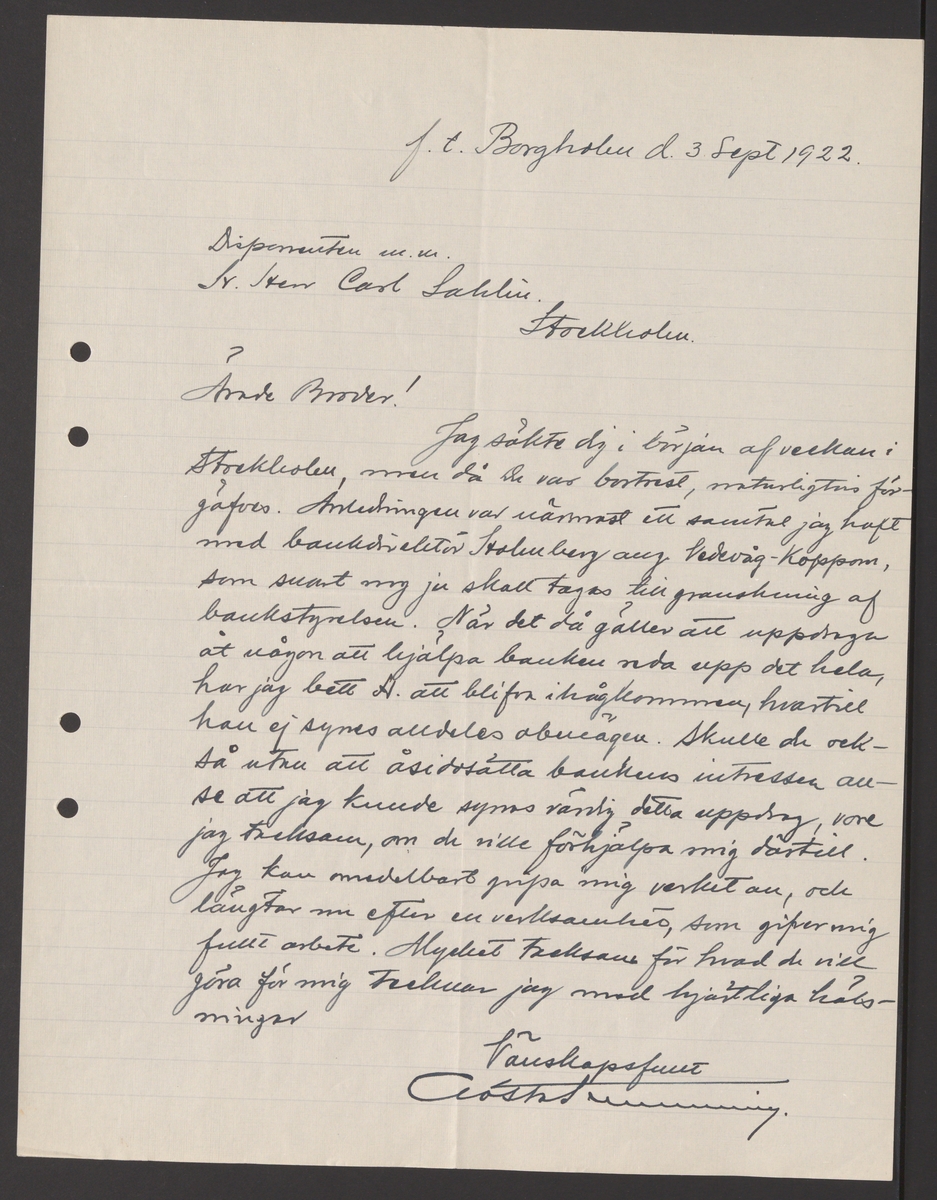 f. t. Borgholm d. 3 Sept 1922.
Disponenten m.m.
Hr. Herr Carl Sahlin.
Stockholm.
Ärade Broder!
Jag sökte dig i början af veckan i
Stockholm, men då du var bortrest, naturligtvis för-
gäfves. Anledningen var närmast ett samtal jag haft
med bankdirektör Holmberg ang. Vedevåg-Koppom,
som snart nog ju skall tagas till granskning af
bankstyrelsen. När det då gäller att uppdraga
åt någon att hjälpa banken reda upp det hela,
har jag bett H. att blifva ihågkommen, hvartill
han ej synes alldeles obenägen. Skulle du ock-
så utan att åsidosätta bankens intressen an-
se att jag kunde synas värdig detta uppdrag, vore
jag tacksam, om du ville förhjälpa mig därtill.
Jag kan omedelbart gripa mig verket an, och
längtar nu efter en verksamhet, som gifver mig
fullt arbete. Mycket tacksam för hvad du vill
göra för mig tecknar jag med hjärtliga häls-
ningar
Vänskapsfullt
Gösta